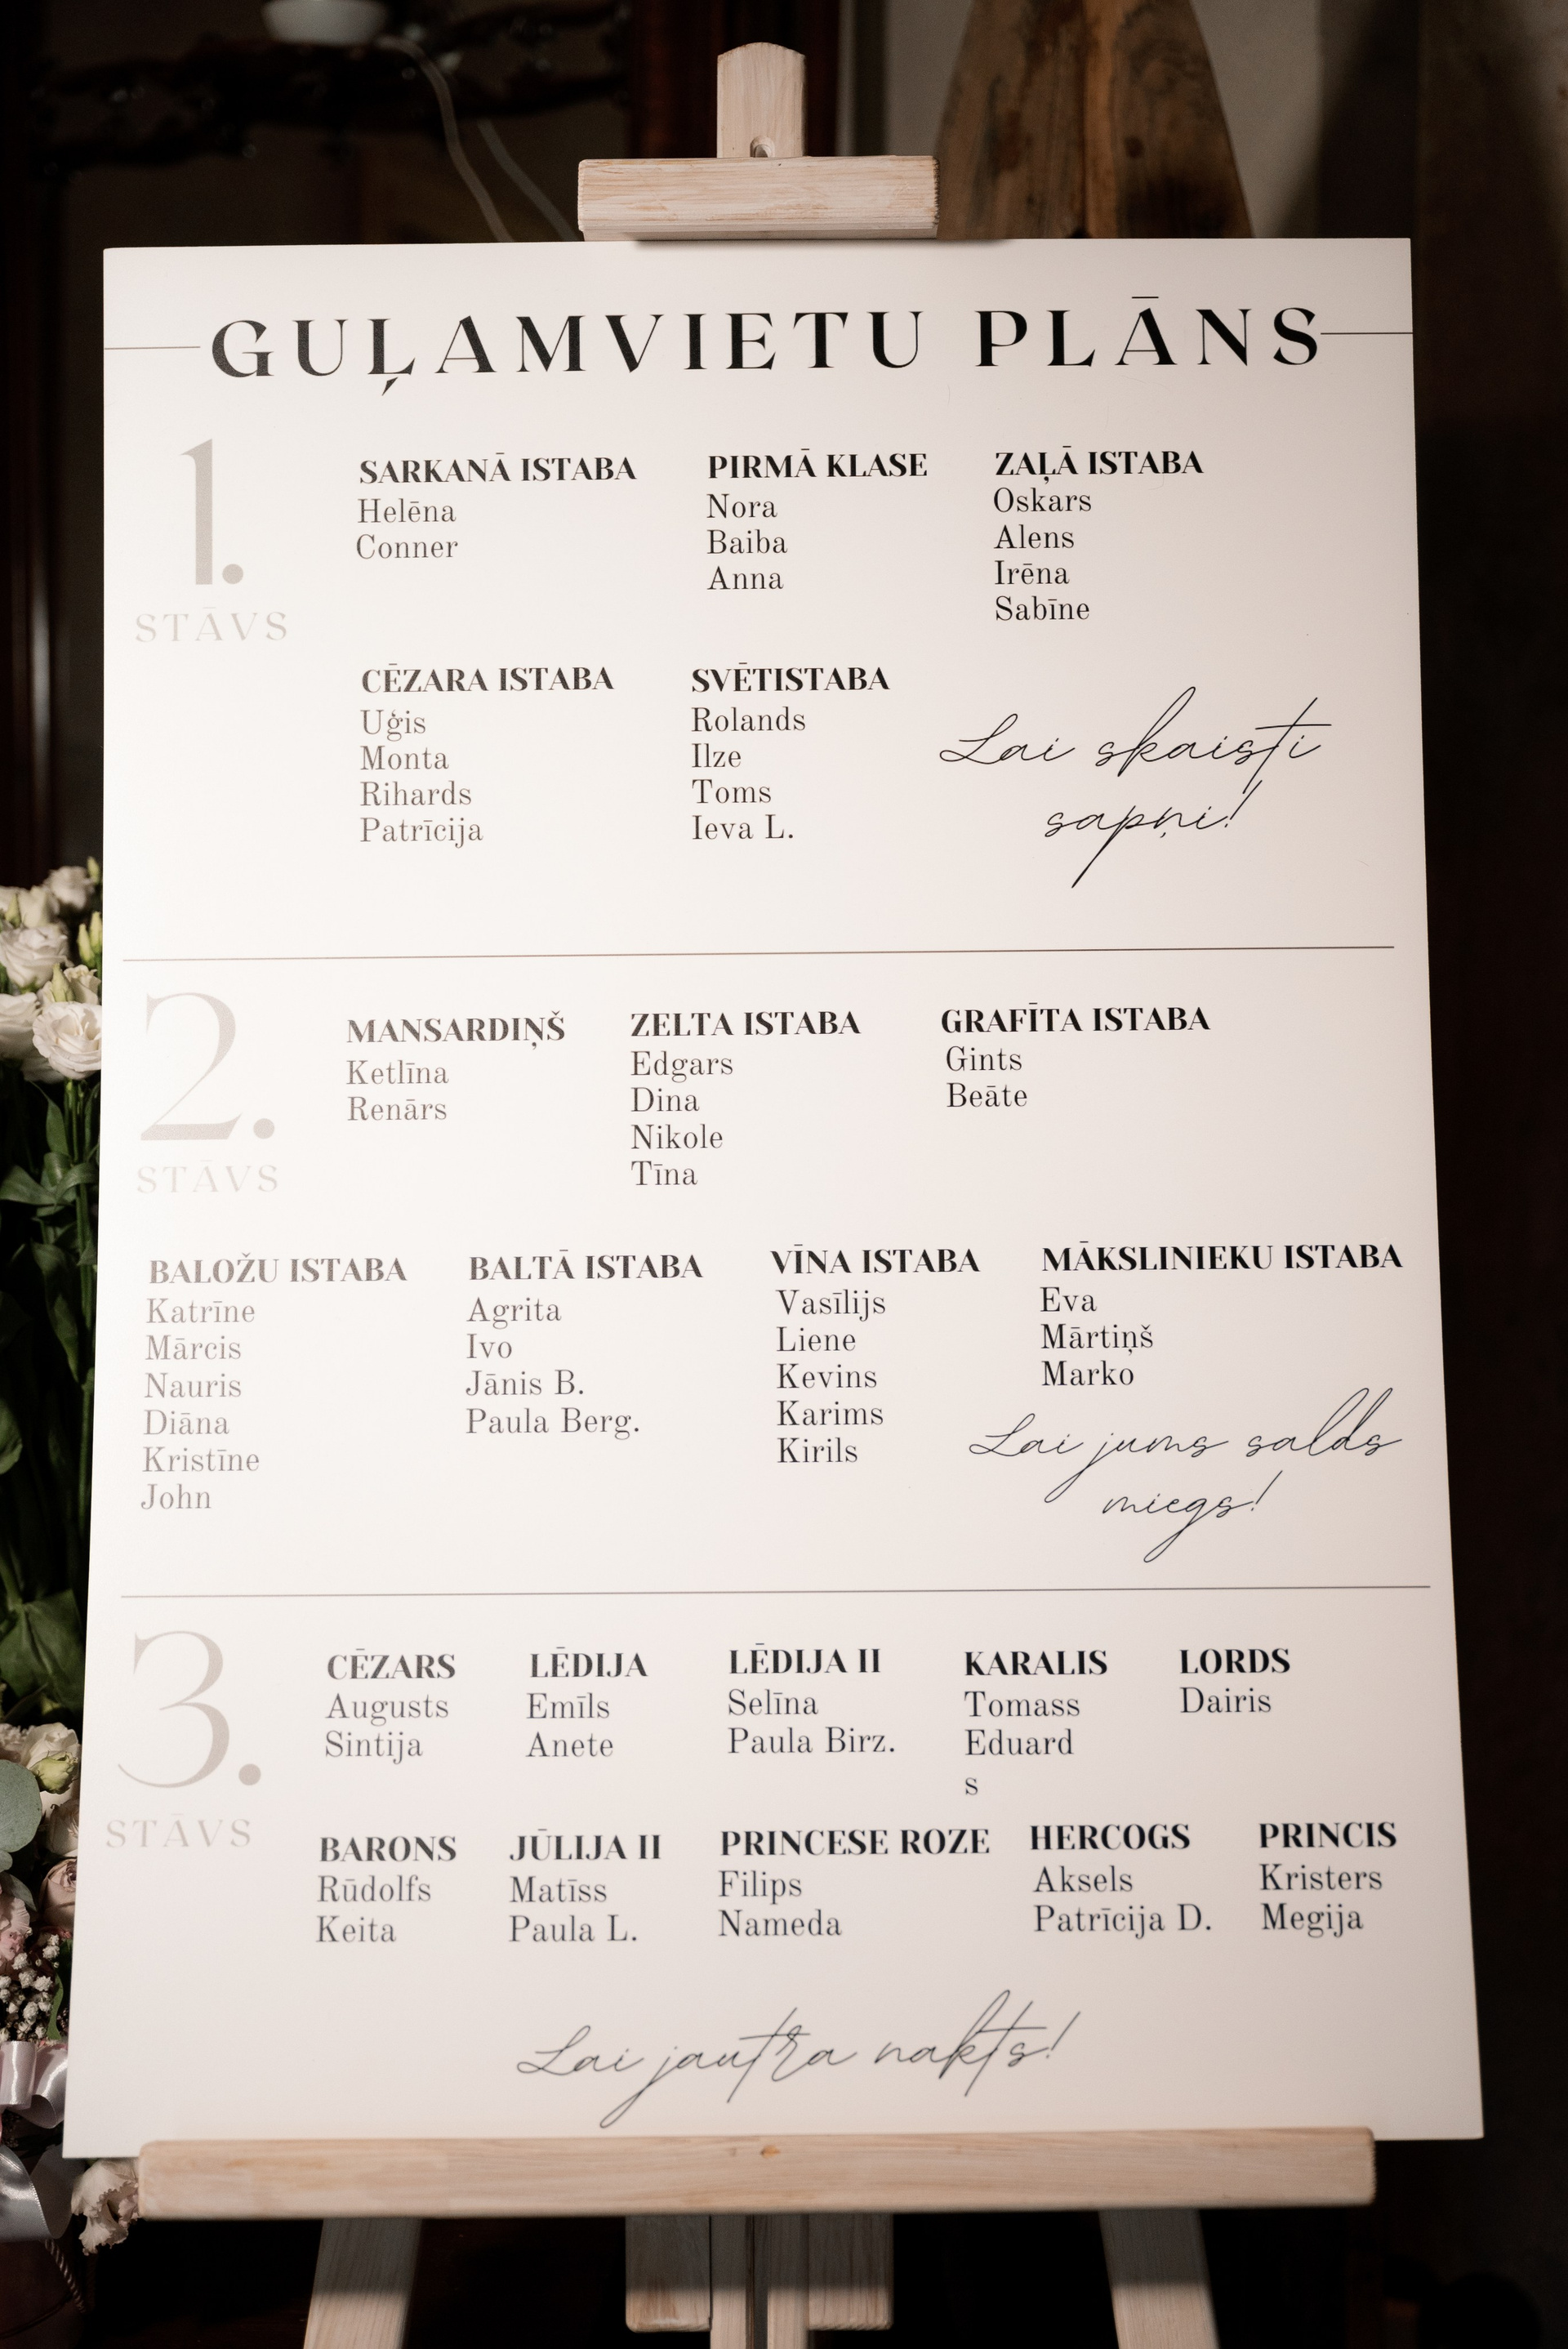 GUĻAMVIETU PLĀNS
1.
STĀVS
SARKANĀ ISTABA
Helēna
Conner
PIRMĀ KLASE
Nora
Baiba
Anna
ZAĻĀ ISTABA
Oskars
Alens
Irēna
Sabīne
CĒZARA ISTABA
Uģis
Monta
Rihards
Patrīcija
SVĒTISTABA
Rolands
Ilze
Toms
Ieva L.
Lai skaisti
sapņi!
2.
STĀVS
MANSARDIŅŠ
Ketlīna
Renārs
ZELTA ISTABA
Edgars
Dina
Nikole
Tīna
GRAFĪTA ISTABA
Gints
Beāte
BALOŽU ISTABA
Katrīne
Mārcis
Nauris
Diāna
Kristīne
John
BALTĀ ISTABA
Agrita
Ivo
Jānis B.
Paula Berg.
VĪNA ISTABA
Vasīlijs
Liene
Kevins
Karims
Kirils
MĀKSLINIEKU ISTABA
Eva
Mārtiņš
Marko
Lai jums salds
miegs!
3.
STĀVS
CĒZARS
Augusts
Sintija
LĒDIJA
Emīls
Anete
LĒDIJA II
Selīna
Paula Birz.
KARALIS
Tomass
Eduard
s
LORDS
Dairis
BARONS
Rūdolfs
Keita
JŪLIJA II
Matīss
Paula L.
PRINCESE ROZE
Filips
Nameda
HERCOGS
Aksels
Patrīcija D.
PRINCIS
Kristers
Megija
Lai jautra nakts!